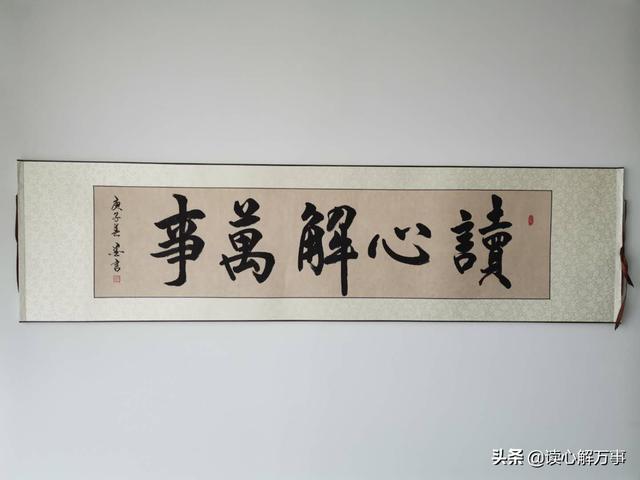 讀心解萬事
庚子姜
书
头条 @读心解万事